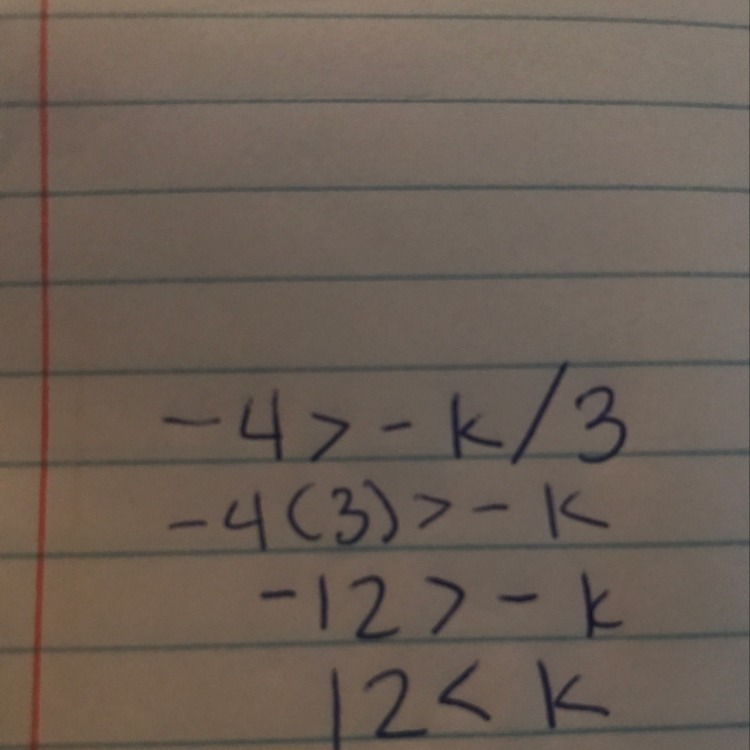 -4 > - k/3
-4(3) > - k
-12 > - k
12 < k